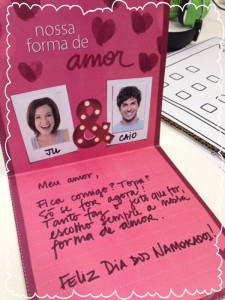 nossa
forma de
amor
&
JU
CAIO
Meu amor,
Fica comigo? Topa?
Só se for agora!
Tanto faz o jeito que for,
escolho sempre a nossa
forma de amor.
FELIZ DIA DOS NAMORADOS!